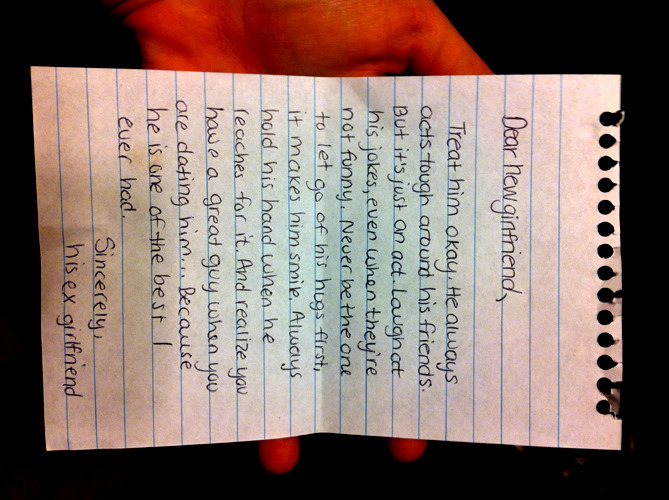 Dear new girlfriend,
Treat him okay. He always
acts tough around his friends.
But it's just an act. Laugh at
his jokes, even when they're
not funny. Never be the one
to let go of his hugs first,
it makes him smile. Always
hold his hand when he
reaches for it. And realize you
have a great guy when you
are dating him... Because
he is one of the best I
ever had.
Sincerely,
his ex girlfriend